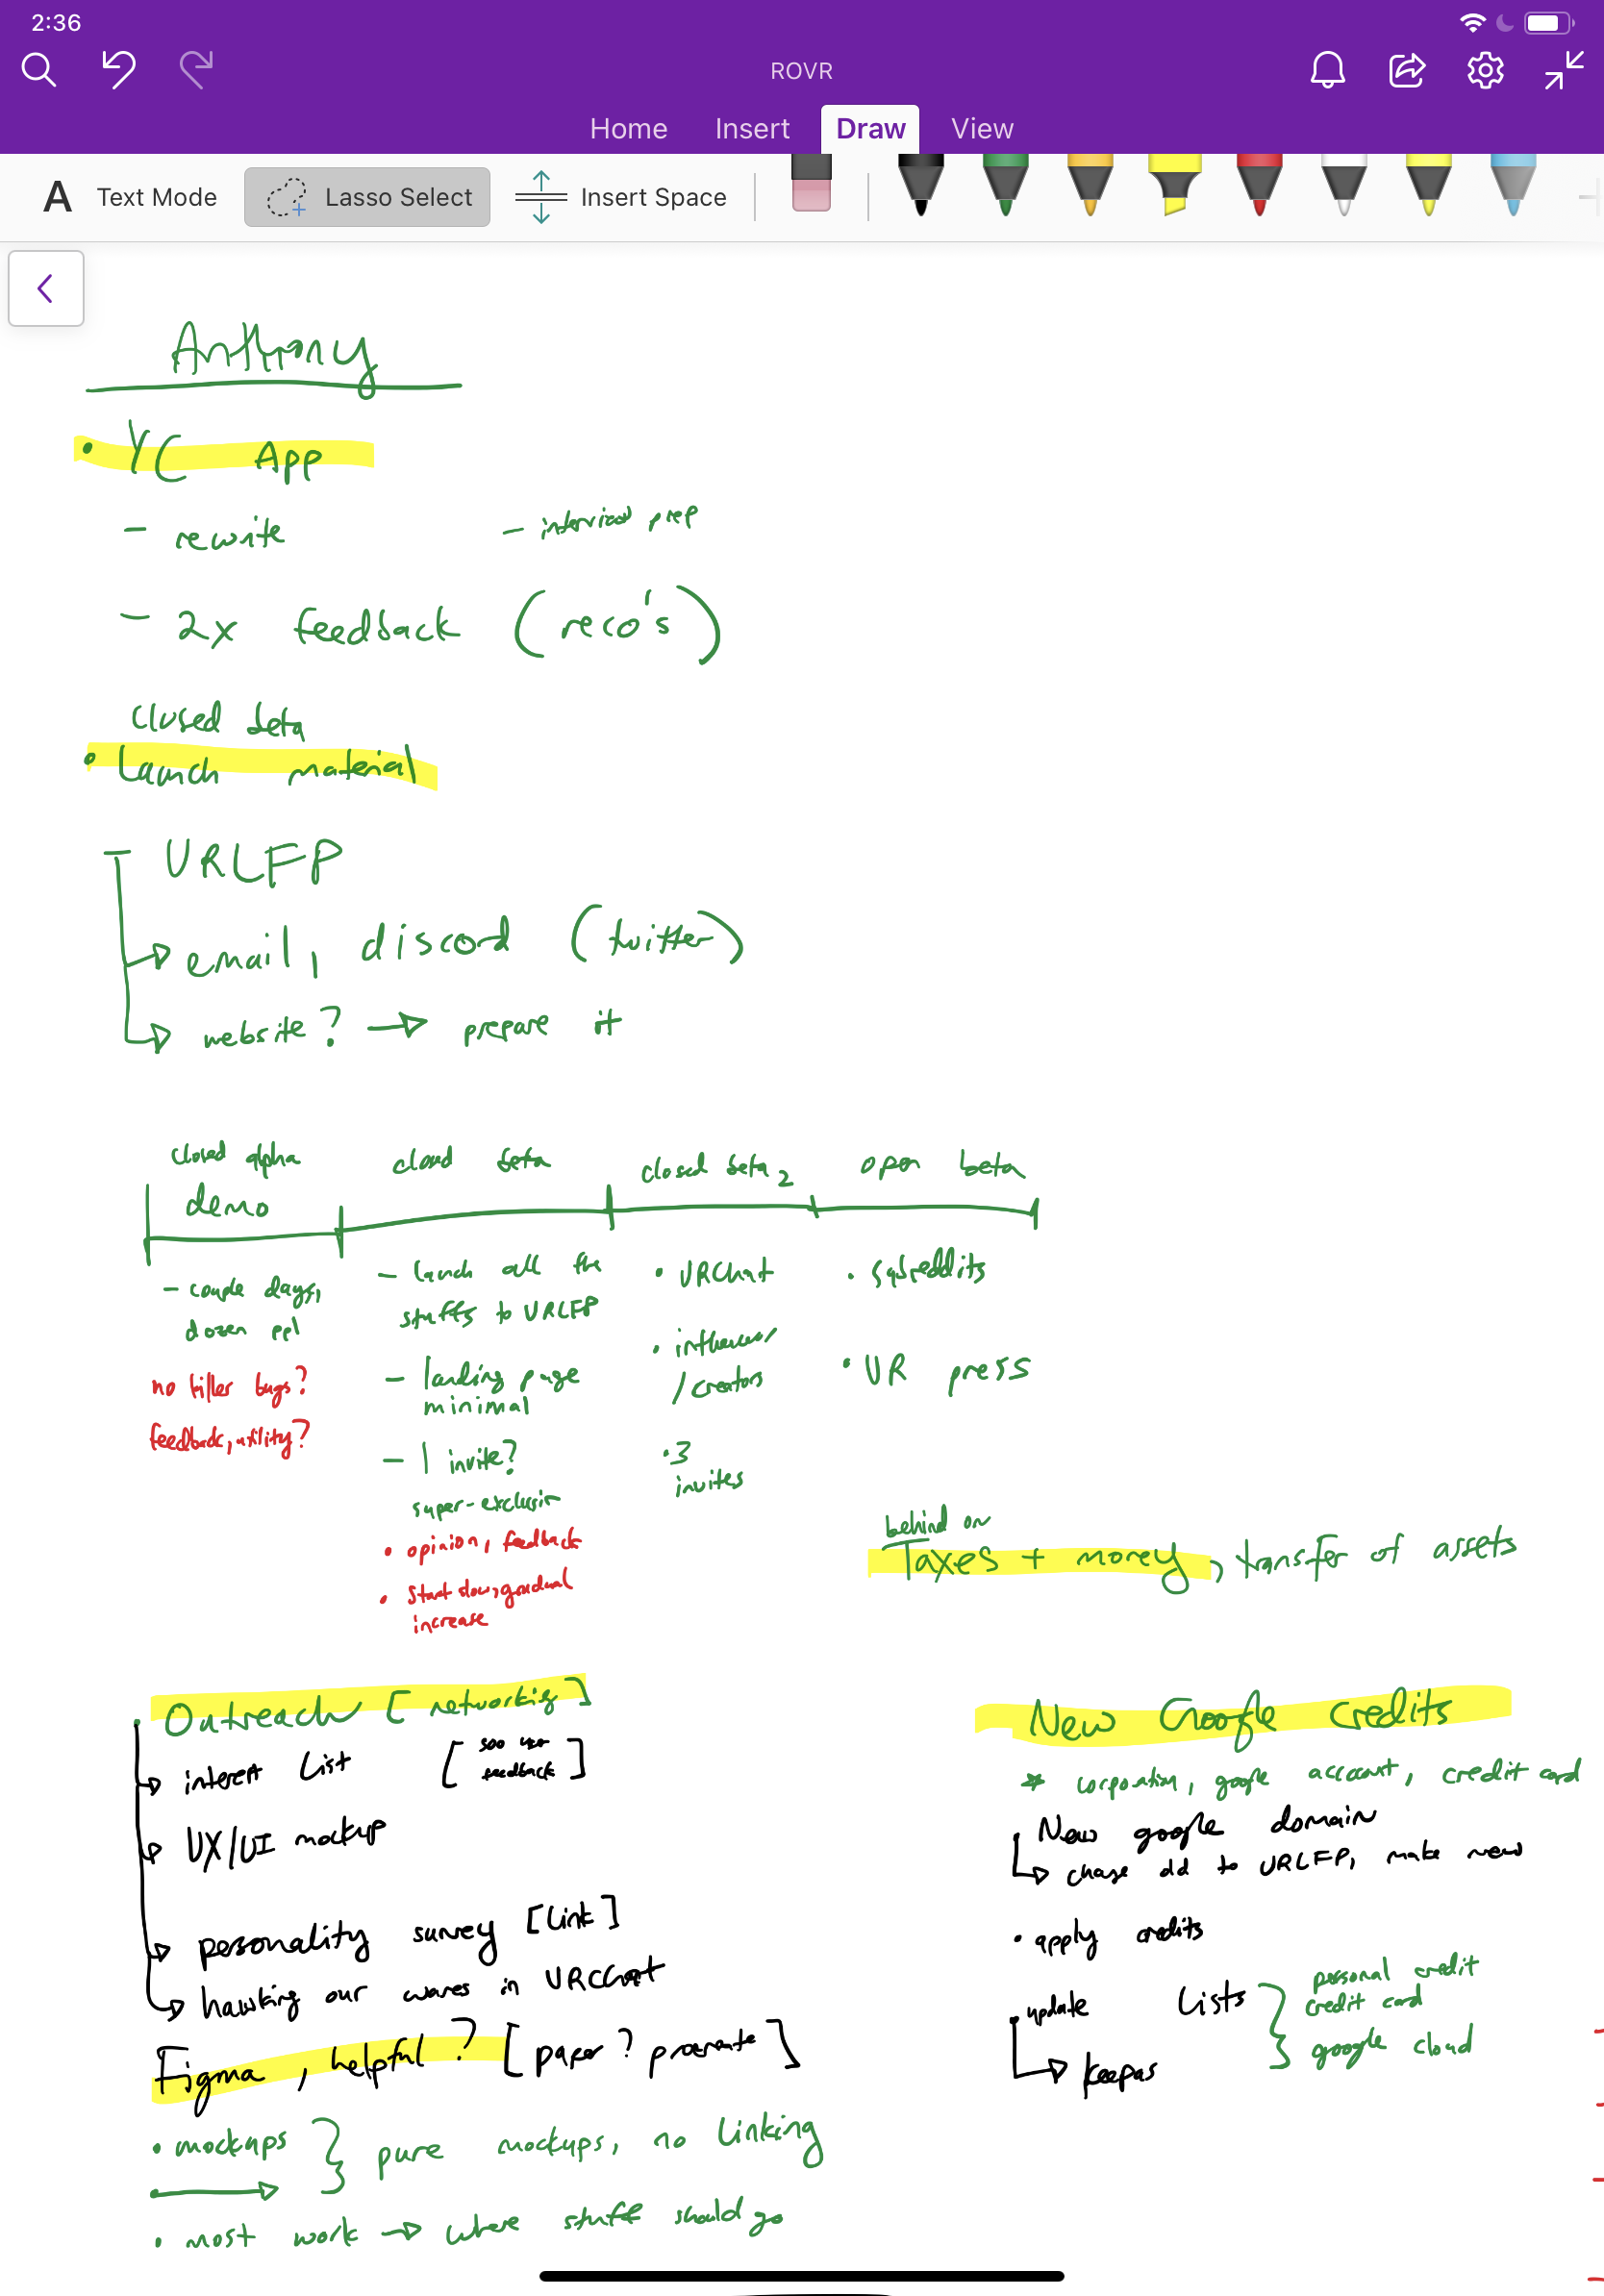 2:36
ROVR
Home Insert Draw View
A Text Mode Lasso Select Insert Space
Anthony
• YC App
- rewrite - interview prep
- 2x feedback (reco's)
closed beta
• Launch material
- VRLFP
→ email, discord (twitter)
→ website? → prepare it
closed alpha
demo
- couple days,
dozen ppl
no killer bugs?
feedback, utility?
closed beta
- launch all the
stuffs to VRLFP
- landing page
minimal
- 1 invite?
super-exclusive
• opinion, feedback
• start slow, gradual
increase
closed beta 2
• VRChat
• influencer
/ creators
• 3
invites
open beta
• subreddits
• VR press
behind on
Taxes + money, transfer of assets
Outreach [networking]
→ interest list [500 user
feedback]
→ UX/UI mockup
→ personality survey [link]
→ hawking our wares in VRCChat
Figma, helpful? [paper? ]
• mockups } pure mockups, no linking
• →
• most work → where stuff should go
New Google Credits
* corporation, google account, credit card
New google domain
→ change old to VRLFP, make new
• apply credits
• update lists } personal credit
credit card
google cloud
→ keepas